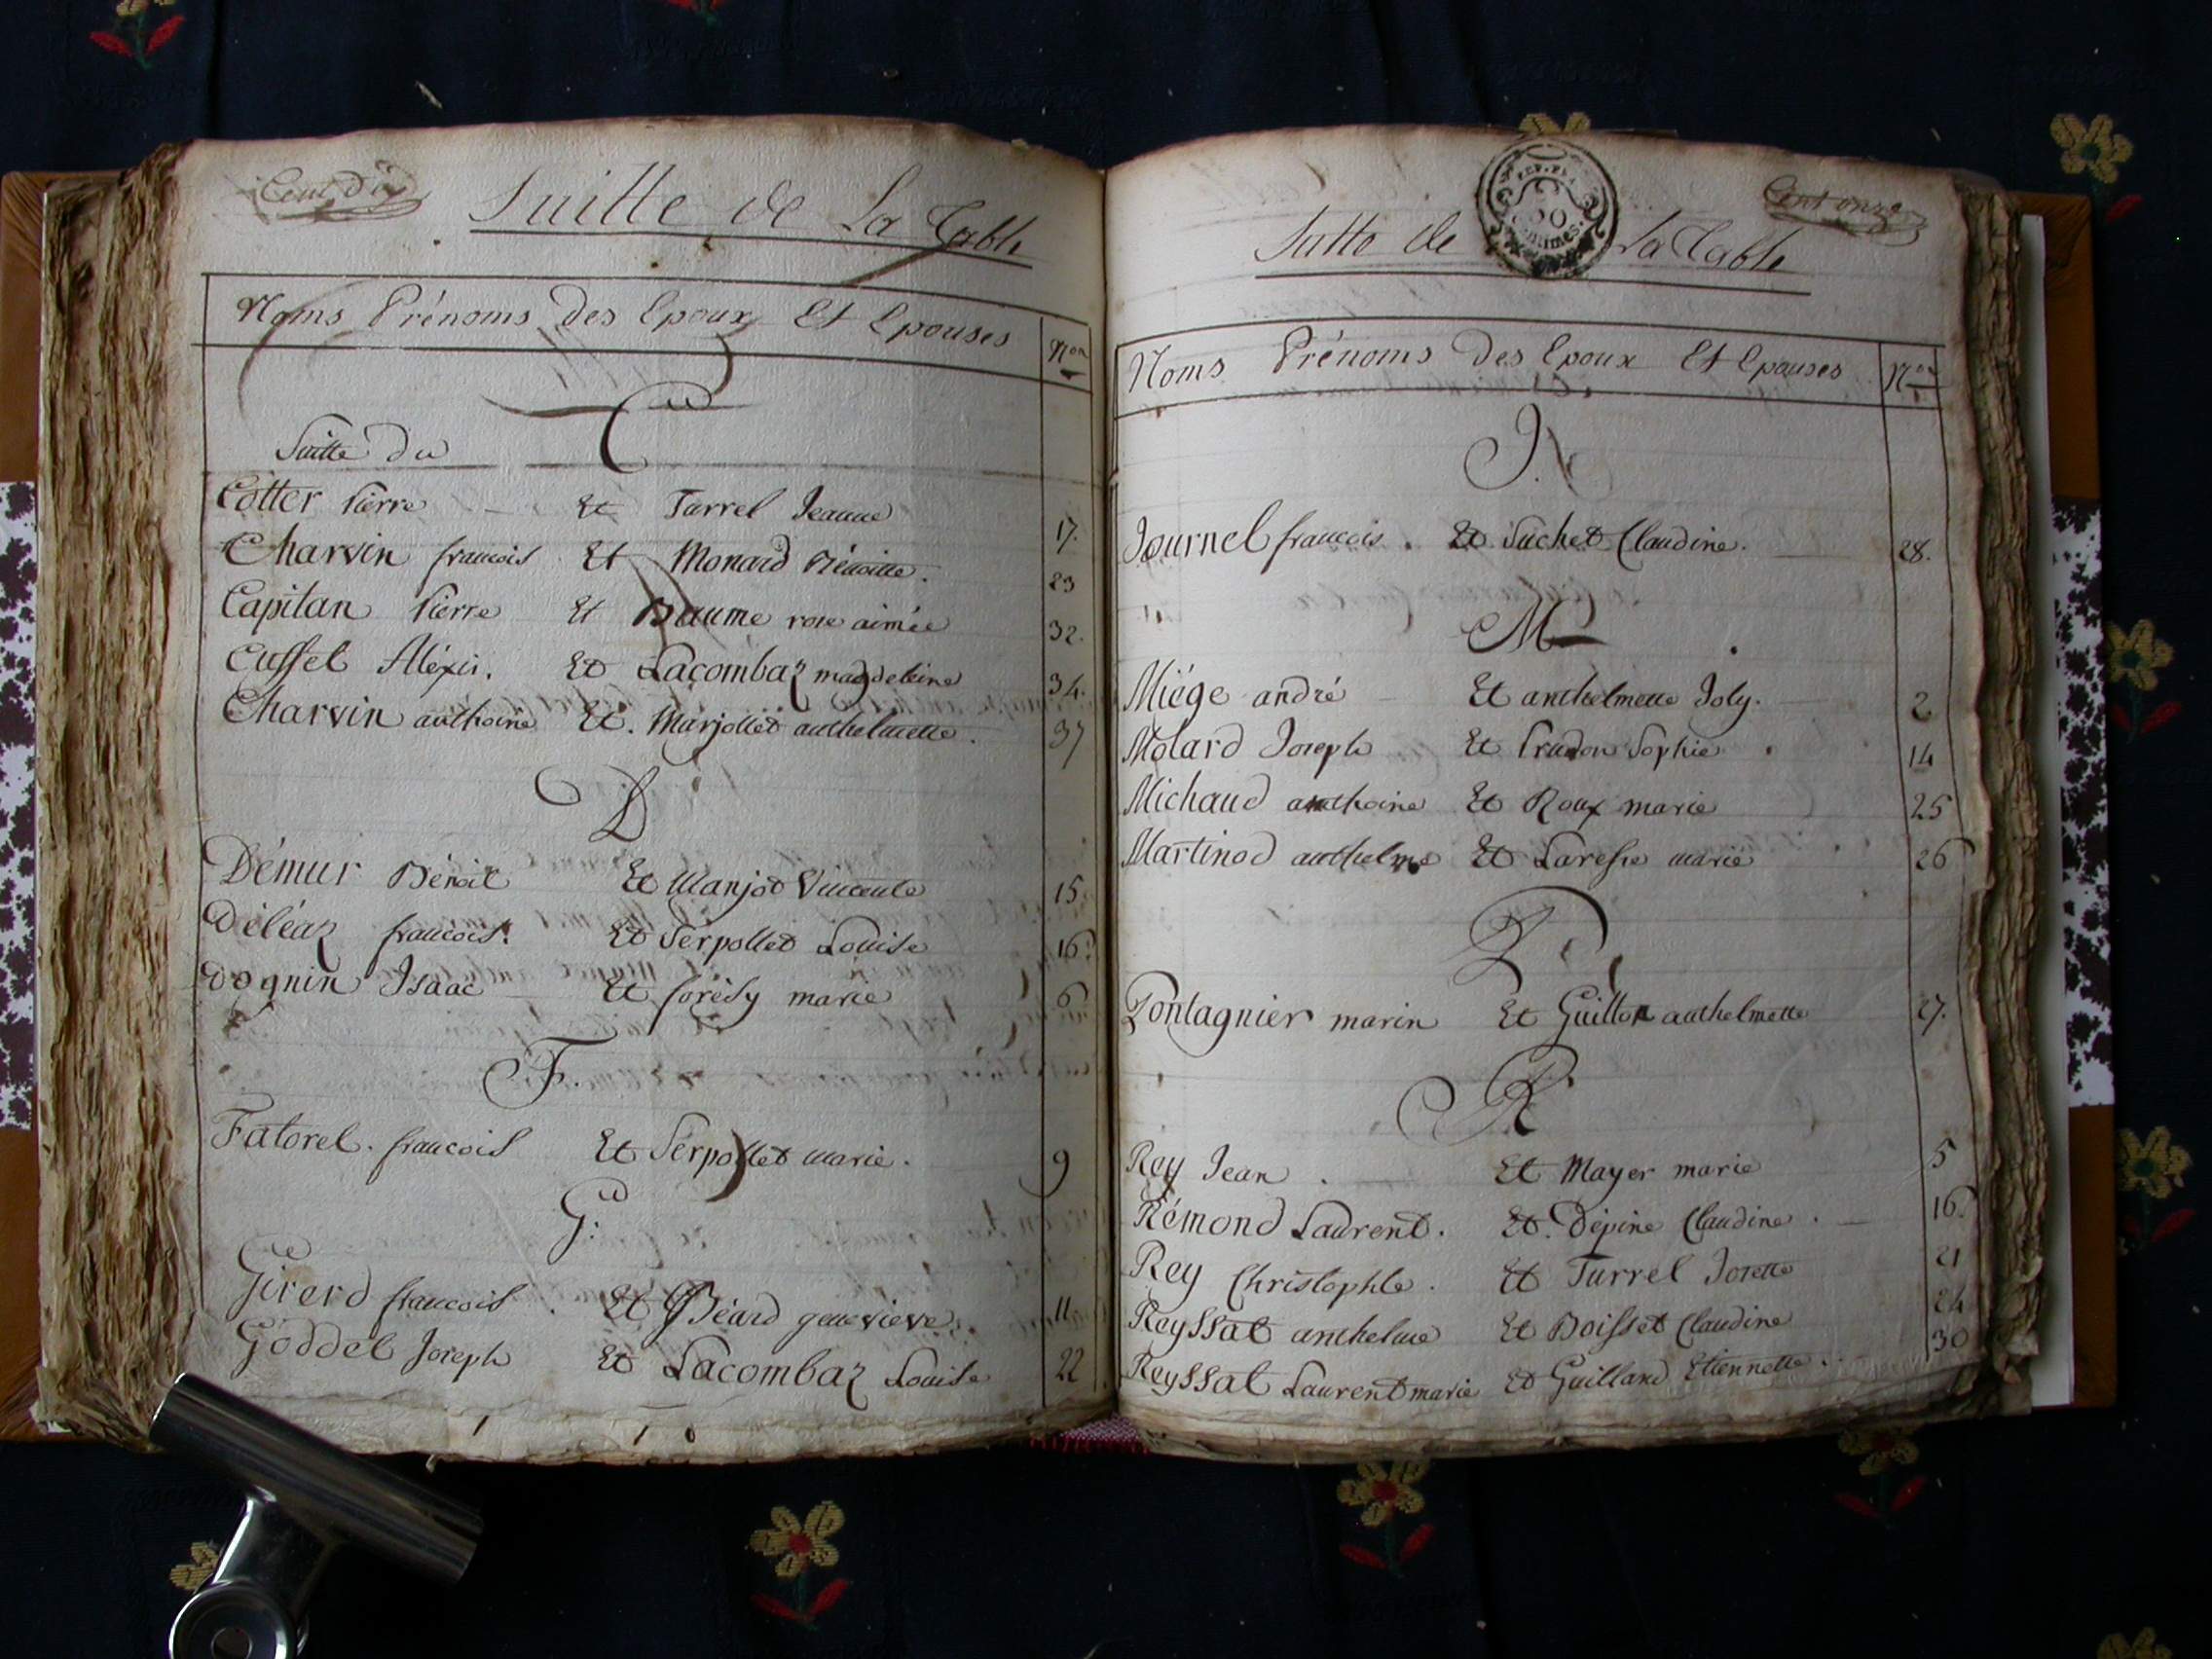 Cent dix
Suitte de La Table
Noms Prénoms Des Epoux Et Epouses Nos
Suitte Du C
Cotter Pierre Et Turrel Jeanne 17.
Charvin francois Et Monard Bénoitte. 23
Capitan Pierre Et Baume rose aimée 32.
Cussel Aléxis. Et Lacombaz magdeleine 34.
Charvin anthoine Et. Marjollet anthelmette. 37
D
Démur Bénoit Et Manjot Vincente 15.
Déléaz francois. Et Serpollet Louise 16.
Dognin Isaac Et forésy marie 6
F.
Fatorel. francois Et Serpollet marie. 9
G.
Girerd francois. Et Béard genevieve. 11
Goddel Joseph Et Lacombaz Louise 22
Cent onze
Suitte de La Table
REP. FRA.
20
Centimes.
Noms Prénoms Des Epoux Et Epouses Nos
J.
Journel francois. Et Suchet Claudine. 28.
M
Miége andré Et anthelmette Joly. 2
Molard Joseph Et Prudon Sophie 14
Michaud anthoine Et Roux marie 25
Martinod anthelme Et Laresse marie 26
P
Pontagnier marin Et Guillon anthelmette 27.
R
Rey Jean. Et Mayer marie 5
Rémond Laurent. Et. Dépine Claudine. 16.
Rey Christophle. Et Turrel Josette 21
Reyssat anthelme Et Boisset Claudine 24
Reyssat Laurent marie Et Guilland Etiennette. 30